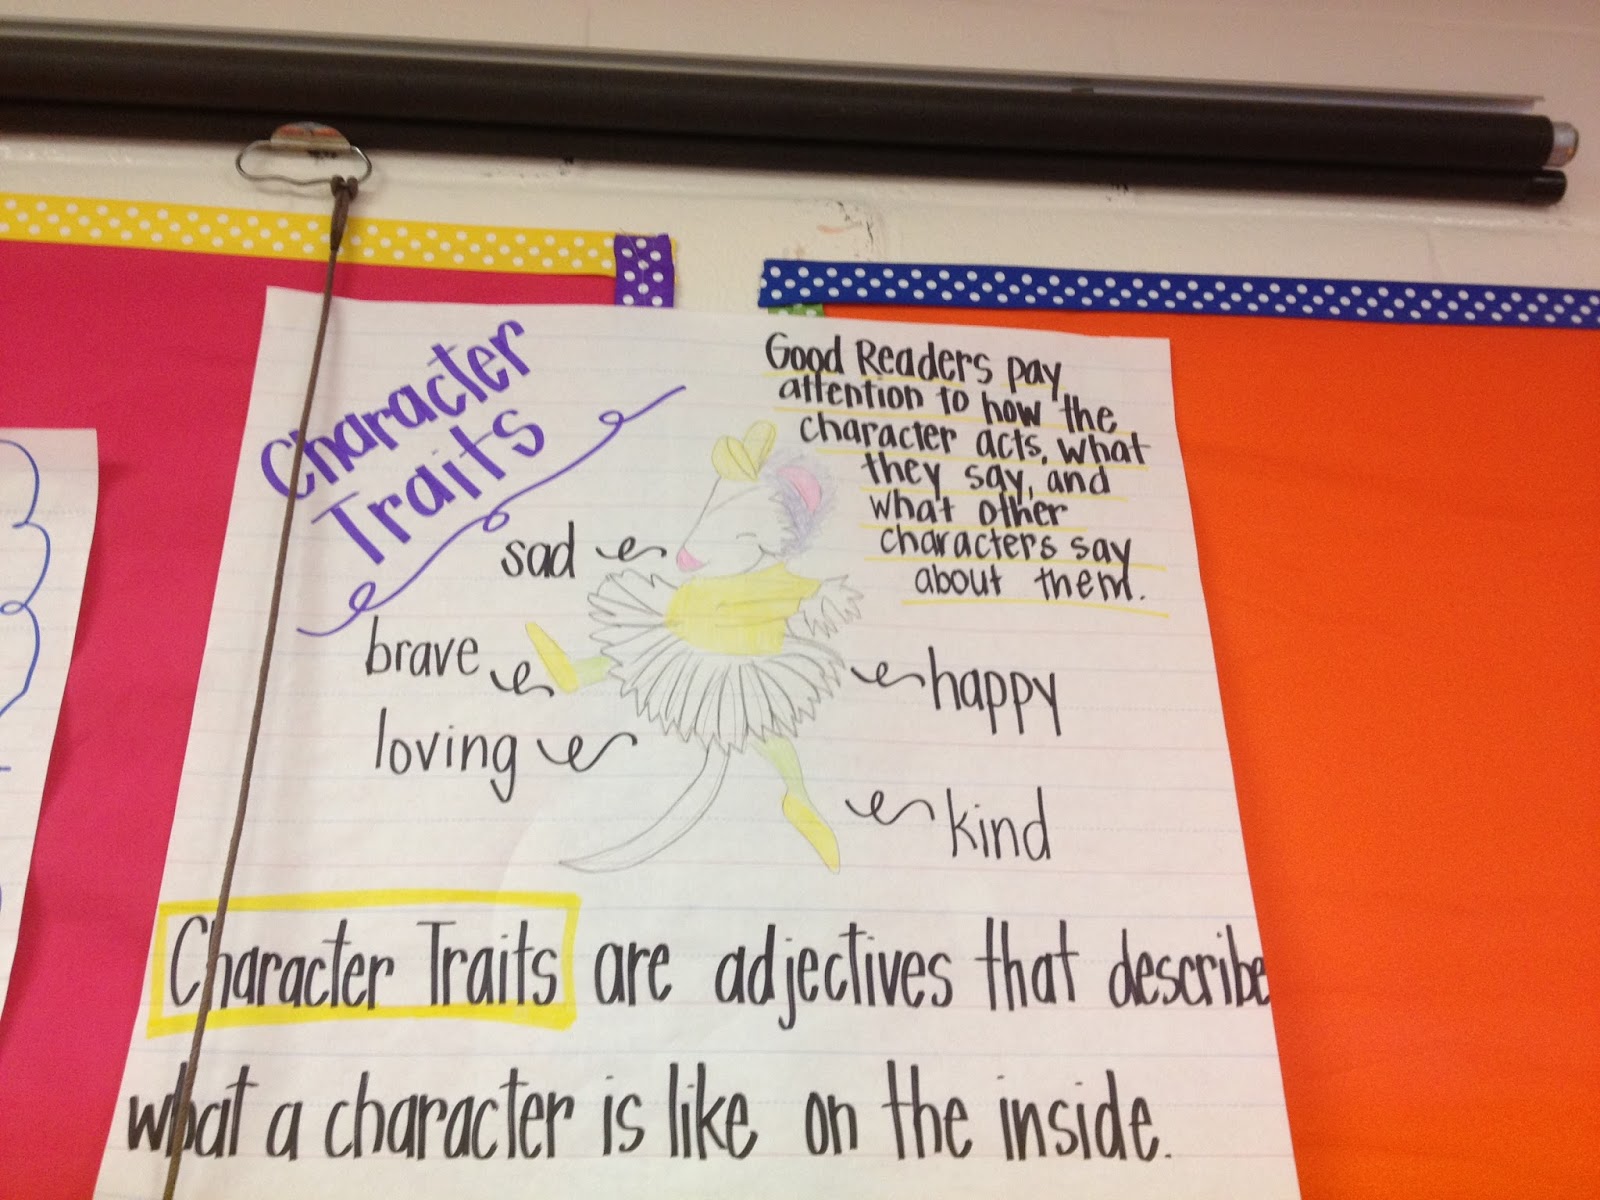 Character
Traits
Good Readers pay
attention to how the
character acts, what
they say, and
what other
characters say
about them.
sad
brave
loving
happy
kind
Character Traits are adjectives that describe
what a character is like on the inside.